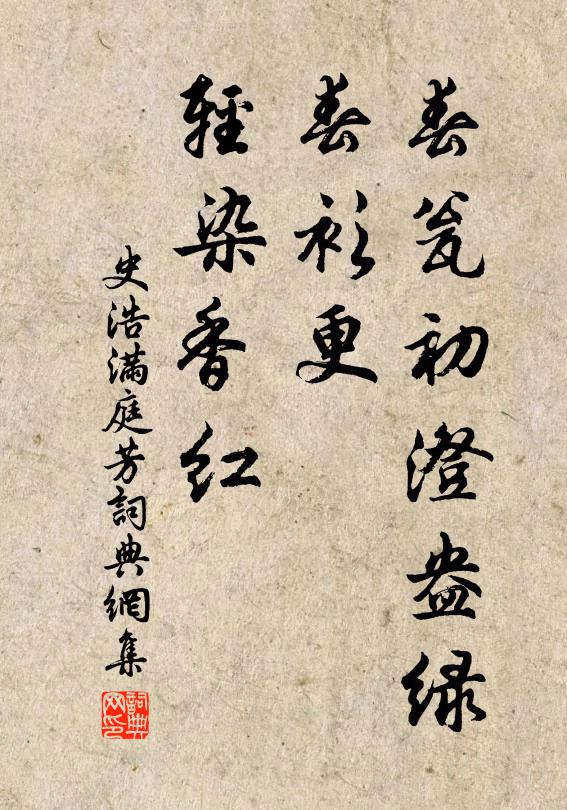 春瓮初澄盎绿
春衫更
輕染香红
史浩满庭芳詞典網集
詞典网印